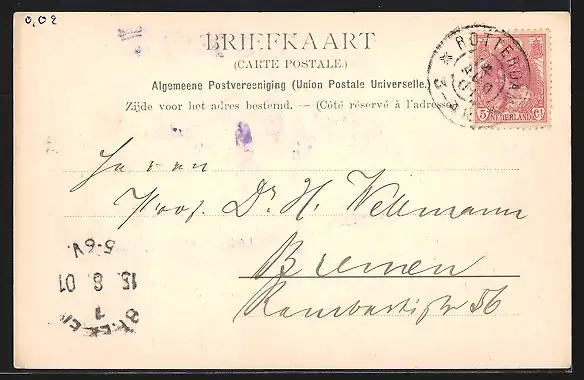 0,02
BRIEFKAART
(CARTE POSTALE.)
Algemeene Postvereeniging (Union Postale Universelle.)
Zijde voor het adres bestemd. — (Côté réservé à l'adresse)
ROTTERDAM
5 NEDERLAND Ct
Herrn
Prof. Dr. H. Wellmann
Bremen
56
5-6V.
15. 8. 01
1